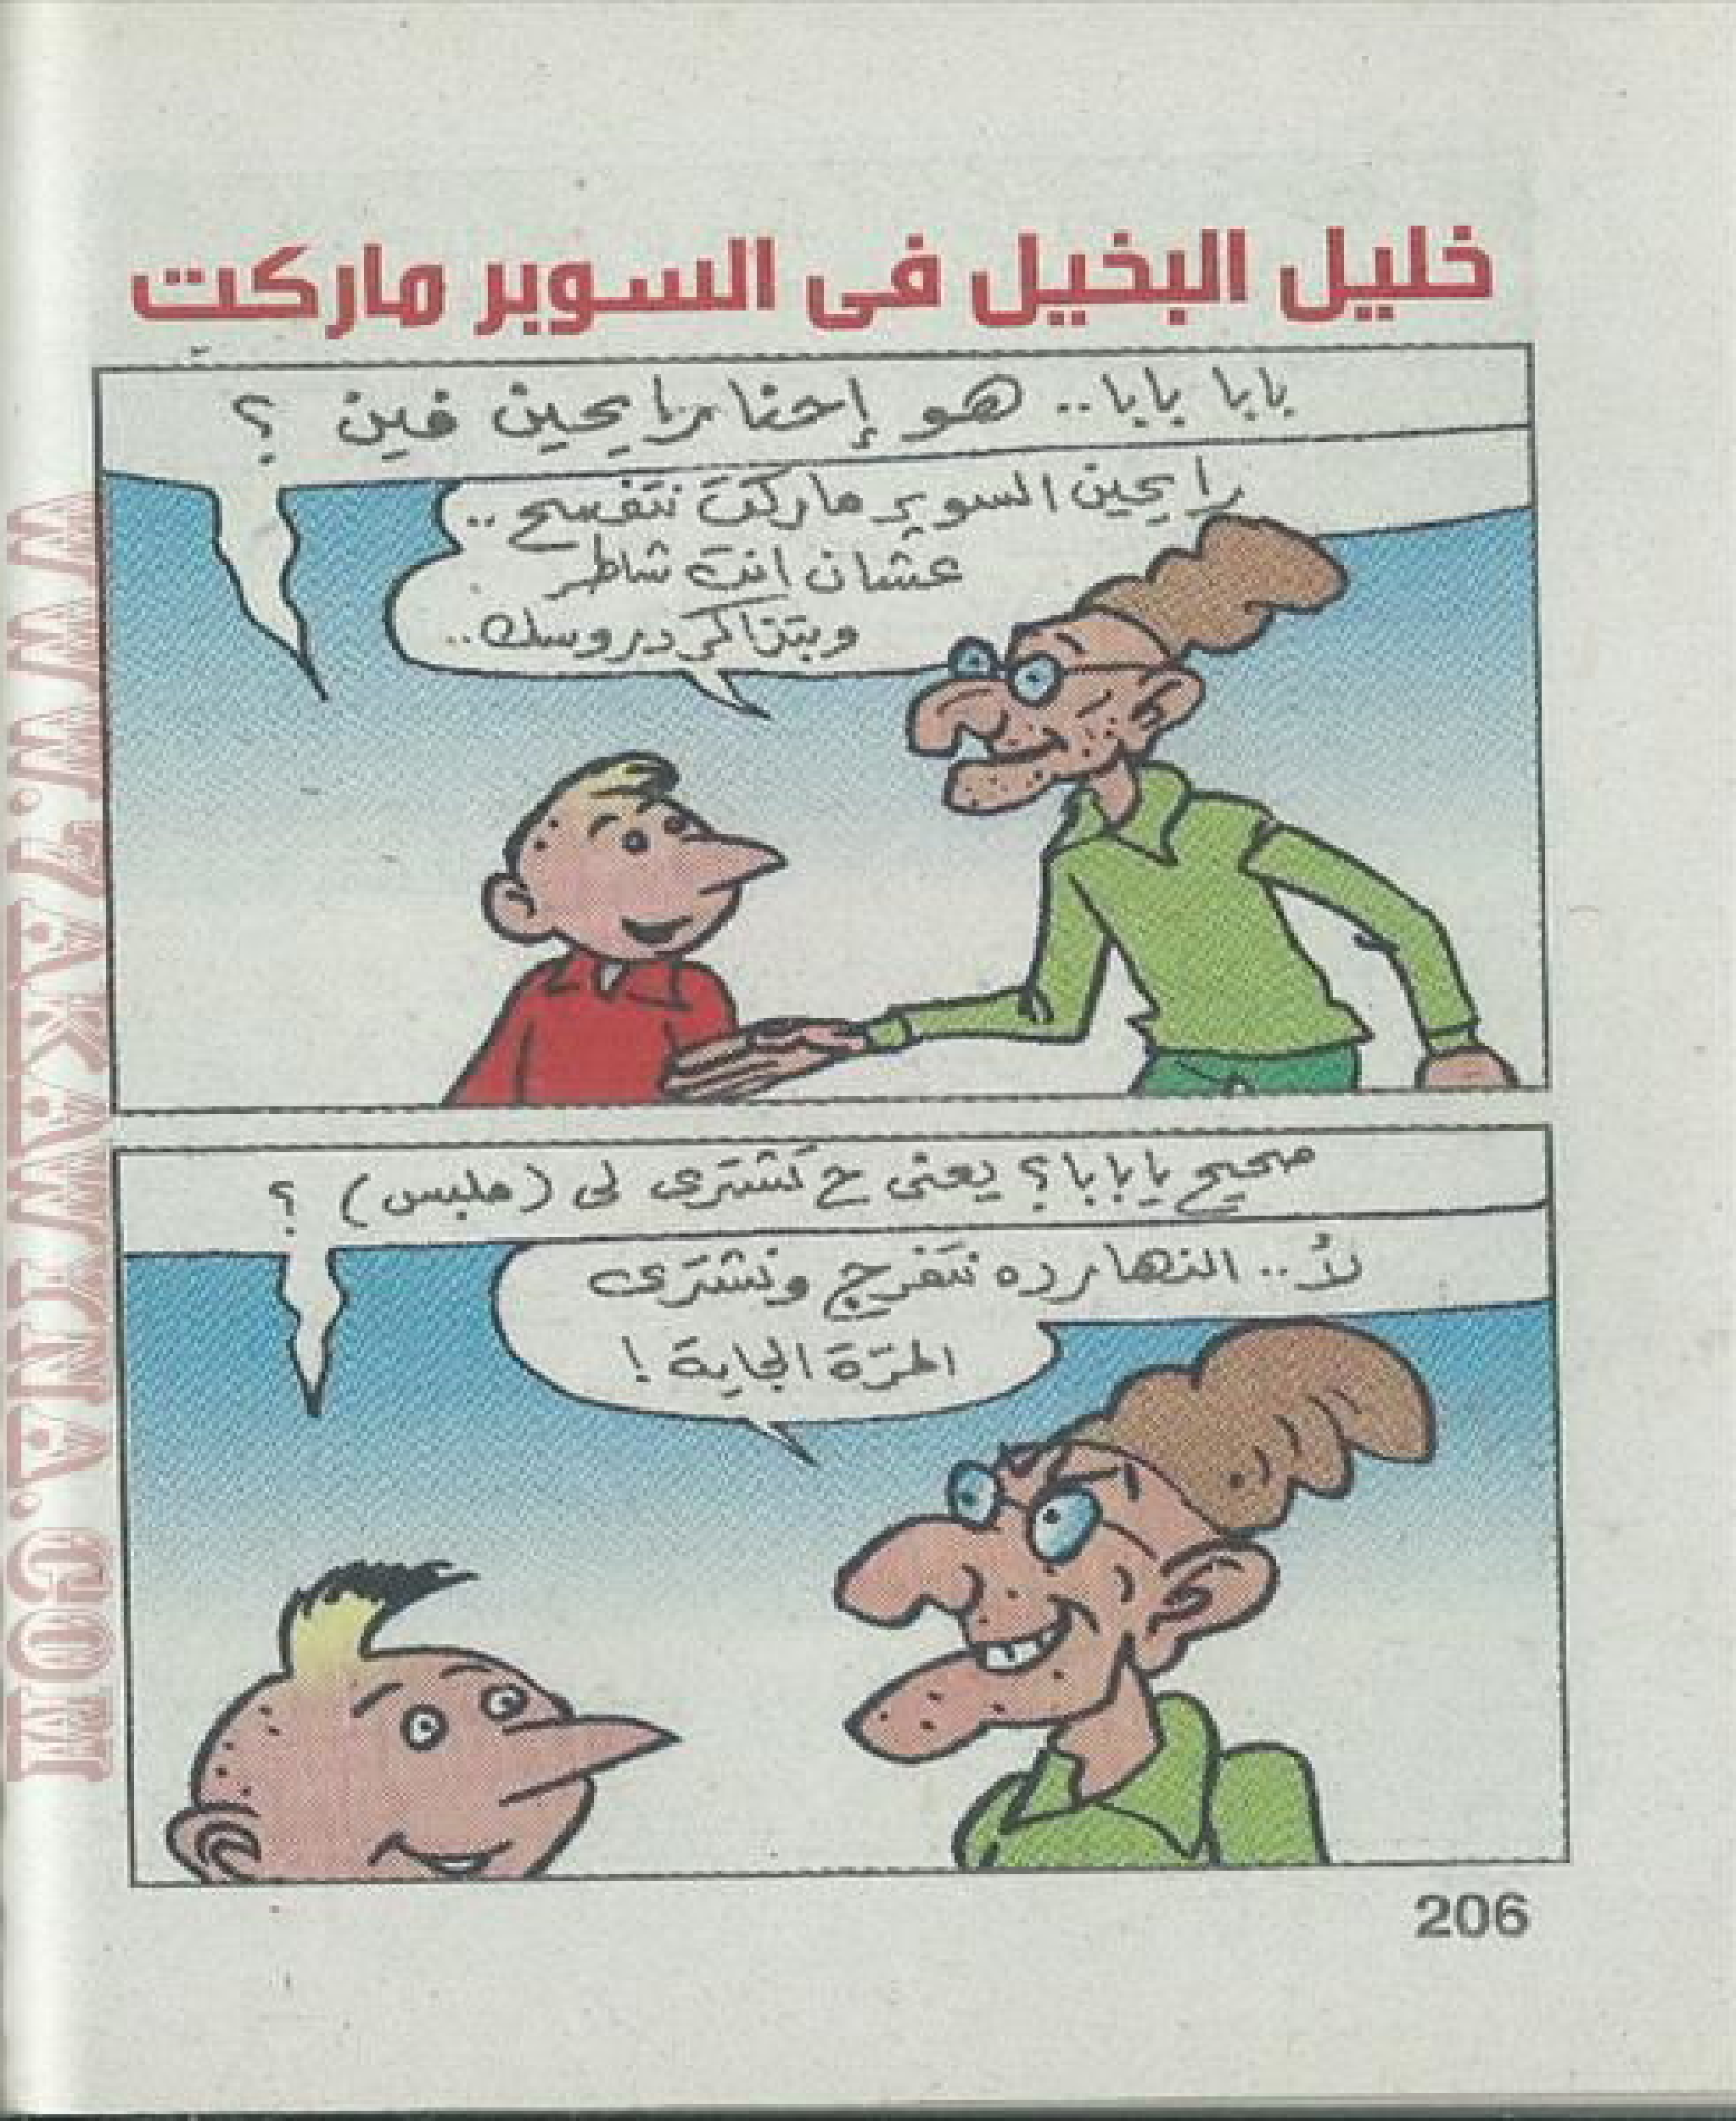 خليل البخيل فى السوبر ماركت
بابا بابا.. هو إحنا رايحين فين ؟
رايحين السوبر ماركت نتفسح..
عشان انت شاطر
وبتذاكر دروسك..
صحيح يا بابا؟ يعنى ح تشترى لى (ملبس) ؟
لأ.. النهارده نتفرج ونشترى
المرّة الجاية !
206
WWW.ZAKAWTNA.COM